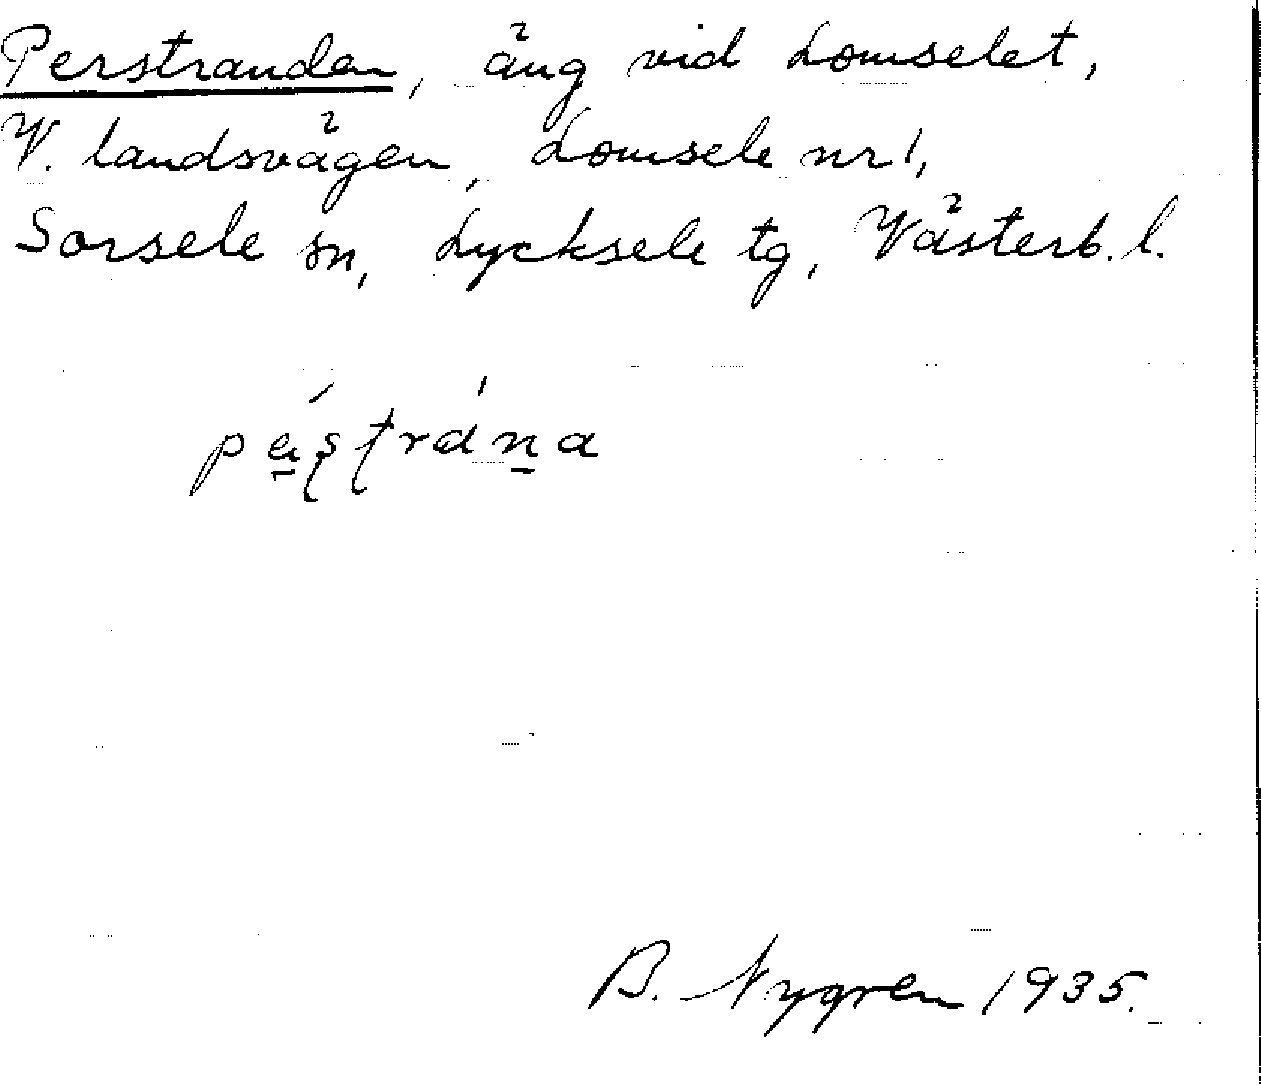 Perstrandan, äng vid Lomselet,
V. landsvägen, Lomsele nr 1,
Sorsele sn, Lycksele tg, Västerb. l.
B. Nygren 1935.